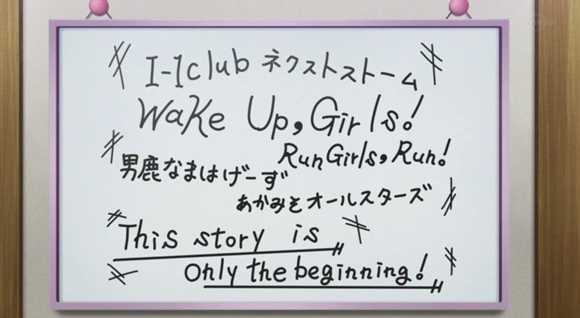 I-1club ネクストストーム
Wake Up, Girls!
Run Girls, Run!
男鹿なまはげーず
あかみそオールスターズ
This story is
Only the beginning!